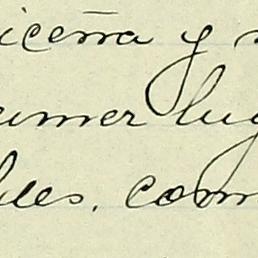 iceña y
imer lug
les. com